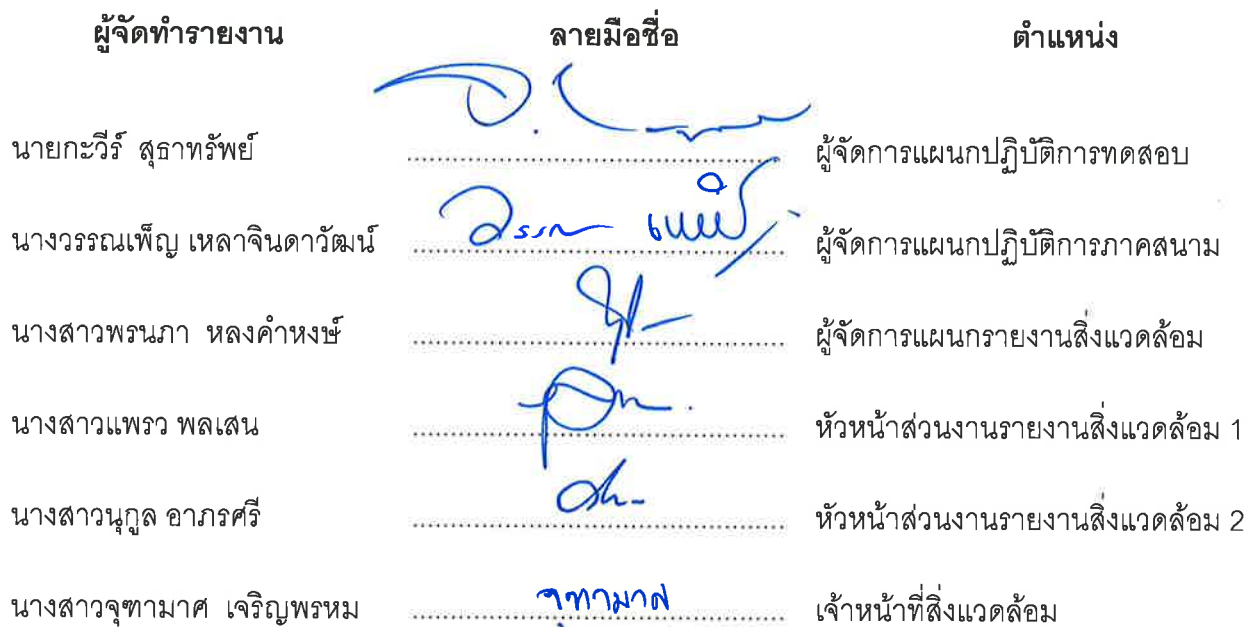 ผู้จัดทำรายงาน ลายมือชื่อ ตำแหน่ง
นายกะวีร์ สุธาทรัพย์ ผู้จัดการแผนกปฏิบัติการทดสอบ
นางวรรณเพ็ญ เหลาจินดาวัฒน์ วรรณ เพ็ญ ผู้จัดการแผนกปฏิบัติการภาคสนาม
นางสาวพรนภา หลงคำหงษ์ ผู้จัดการแผนกรายงานสิ่งแวดล้อม
นางสาวแพรว พลเสน หัวหน้าส่วนงานรายงานสิ่งแวดล้อม 1
นางสาวนุกูล อาภรศรี หัวหน้าส่วนงานรายงานสิ่งแวดล้อม 2
นางสาวจุฑามาศ เจริญพรหม จุฑามาศ เจ้าหน้าที่สิ่งแวดล้อม